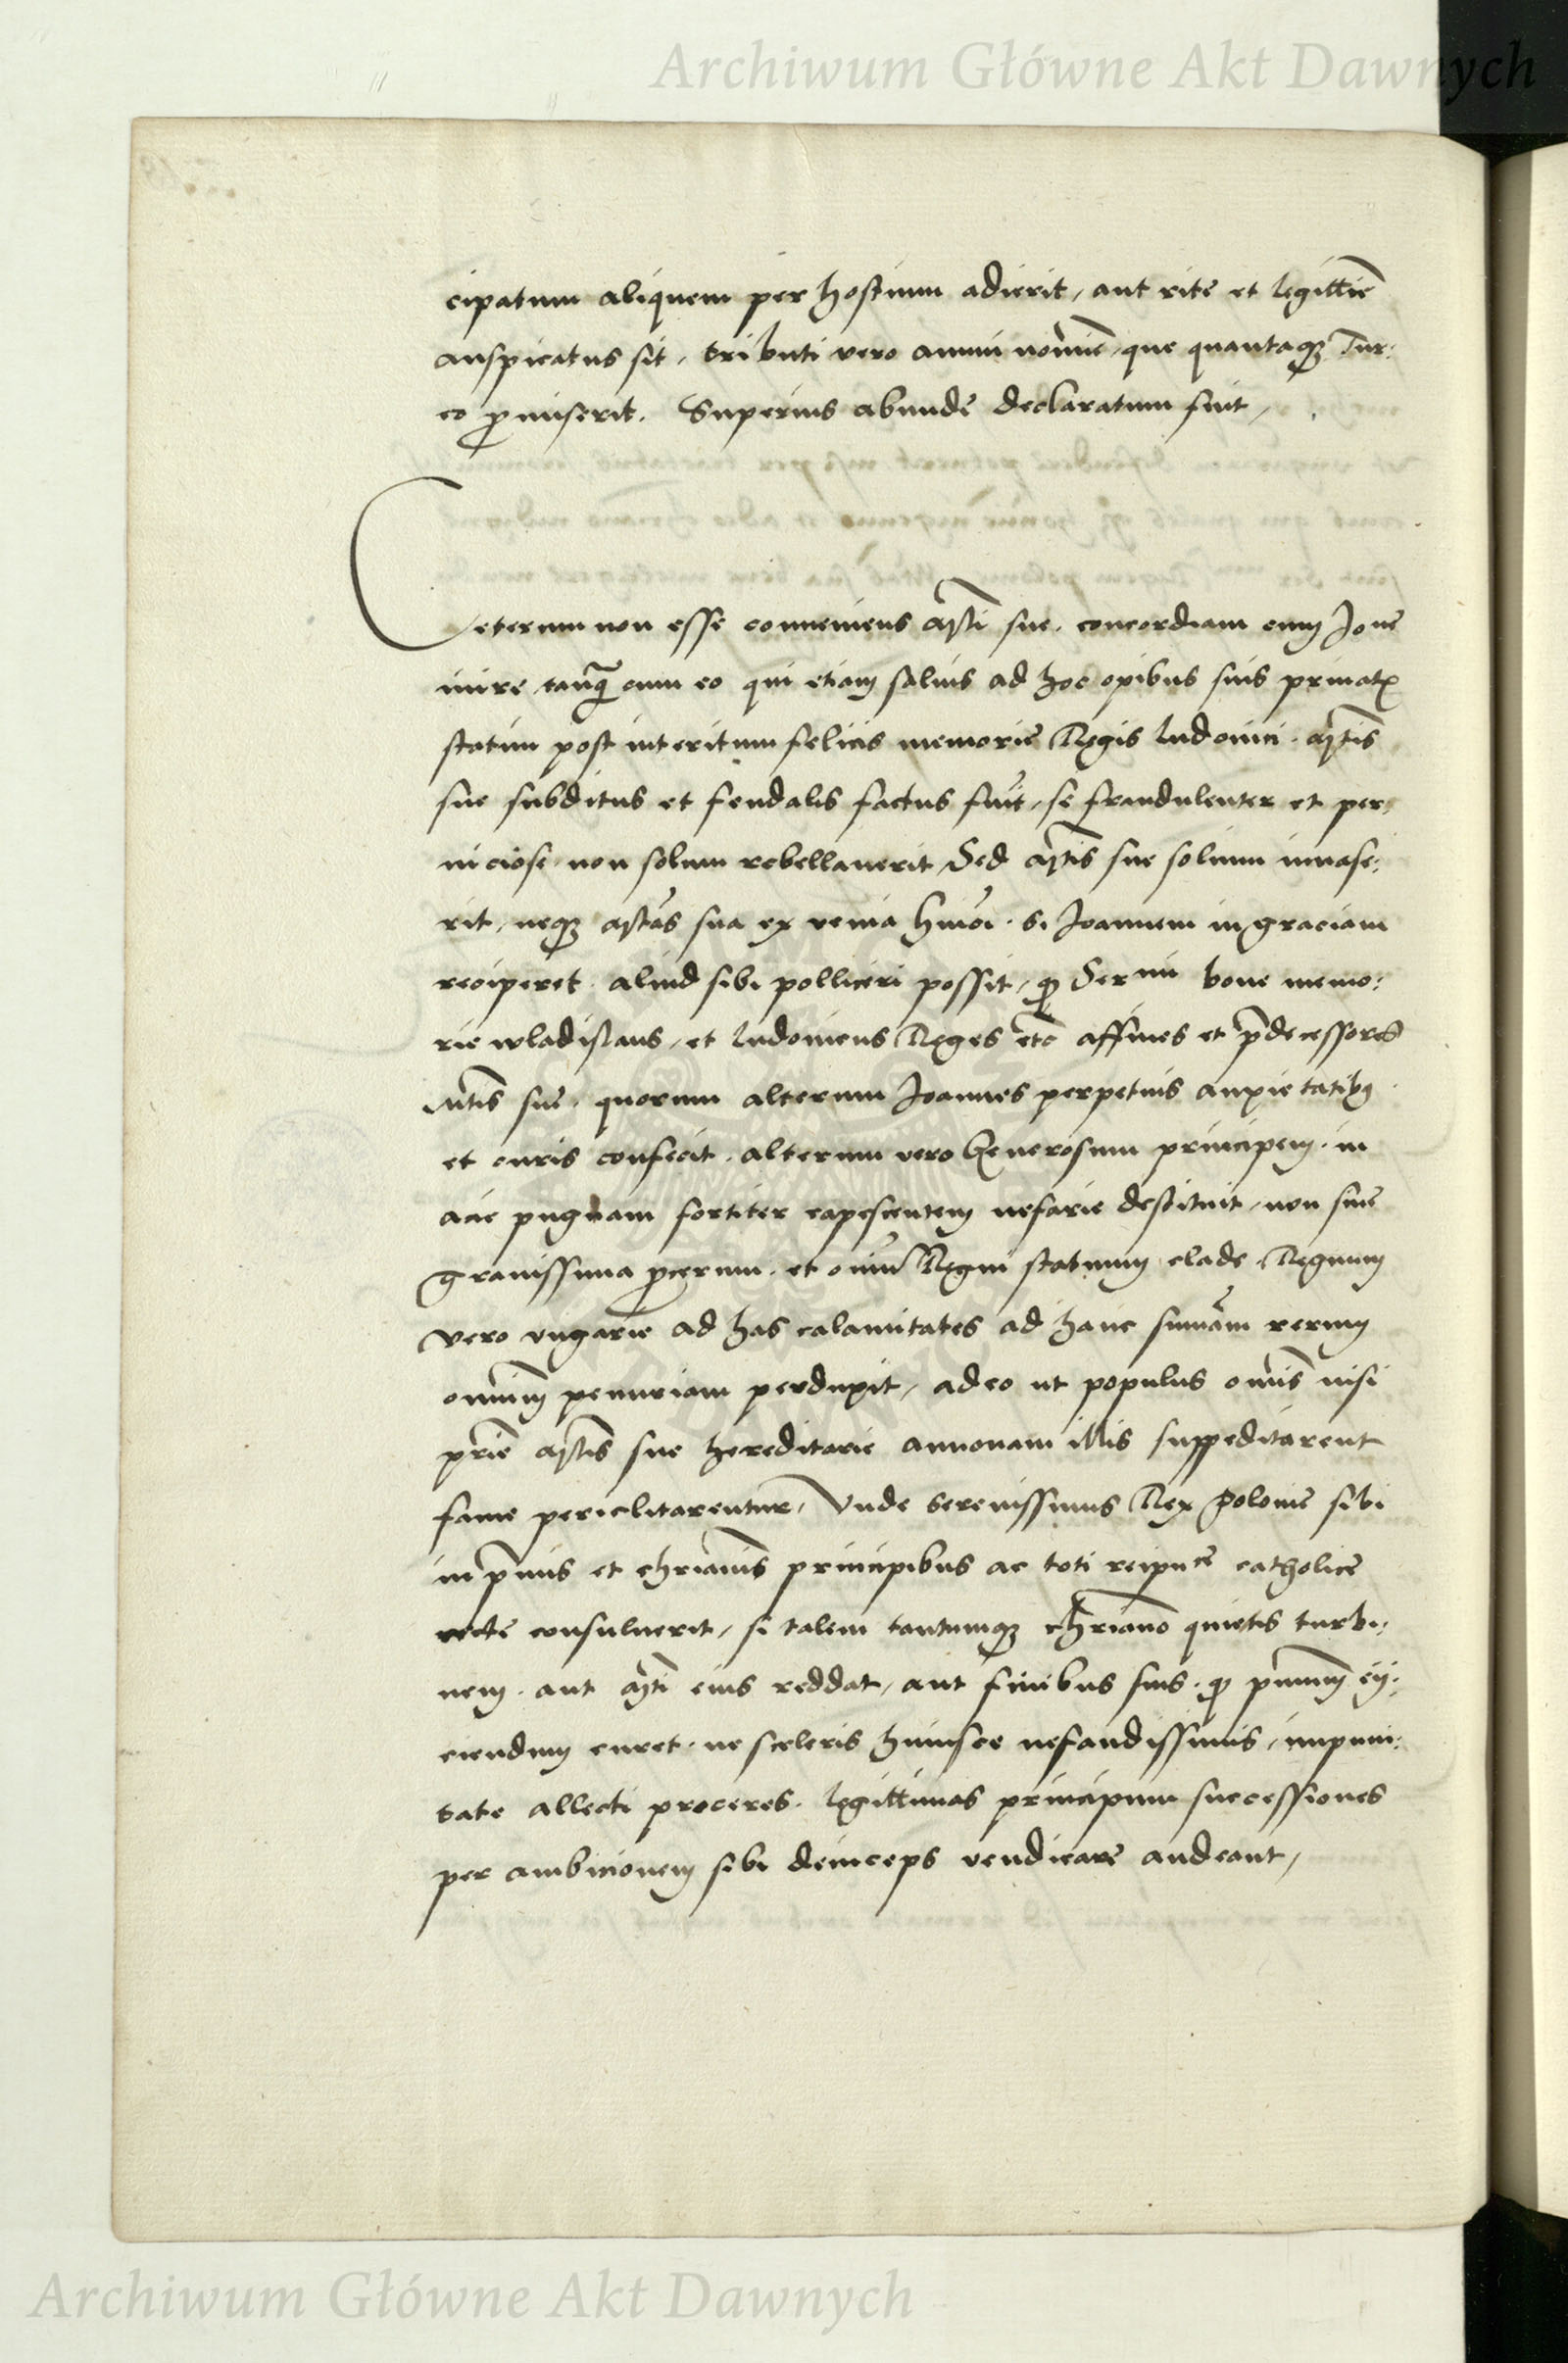 Archiwum Główne Akt Dawnych
cipatum aliquem per hostium adierit, aut rite et legittie
auspicatus sit, tributi vero annui nomine, que quantaq3 Tur:
co pmiserit. Superius abunde declaratum fuit,
Ceterum non esse conueniens Mti sue, concordiam cum Joane
inire tanq cum eo qui etiam saluis ad hoc opibus suis priuatis
statim post interitum felicis memorie Regis Ludouici. Mtis
sue subditus et feudalis factus fuit, se fraudulenter et per:
niciose non solum rebellauerit, Sed Mtis sue solium inuase:
rit, neq3 Mtas sua ex venia hmoi. si Joannem in graciam
reciperet. aliud sibi polliceri possit, q Ser mi bone memo:
rie wladislaus, et Ludouicus Reges etc affines et pdecessores
Mtis sue. quorum alterum Joannes perpetuis anxietatib9
et curis confecit. alterum vero Generosum principem. in
acie pugnam fortiter capescentem nefarie destituit, non sine
grauissima pcerum. et oium Regni statuum clade. Regnum
vero vngarie ad has calamitates ad hanc sumam rerum
omnium penuriam perduxit, adeo ut populus omis nisi
prie Mtis sue hereditarie annonam illis suppeditarent
fame periclitarentur, Vnde Serenissimus Rex Polonie sibi
in pmis et chrianis principibus ac toti reipu ce catholice
recte consuluerit, si talem tantumq3 chriano quietis turbi:
nem. aut Mti eius reddat, aut finibus suis. q pmum eij:
ciendum curet. ne sceleris huiusce nefandissimis, impuni:
tate allecti proceres. legittimas principum successiones
per ambicionem sibi deinceps vendicare audeant,
Archiwum Główne Akt Dawnych